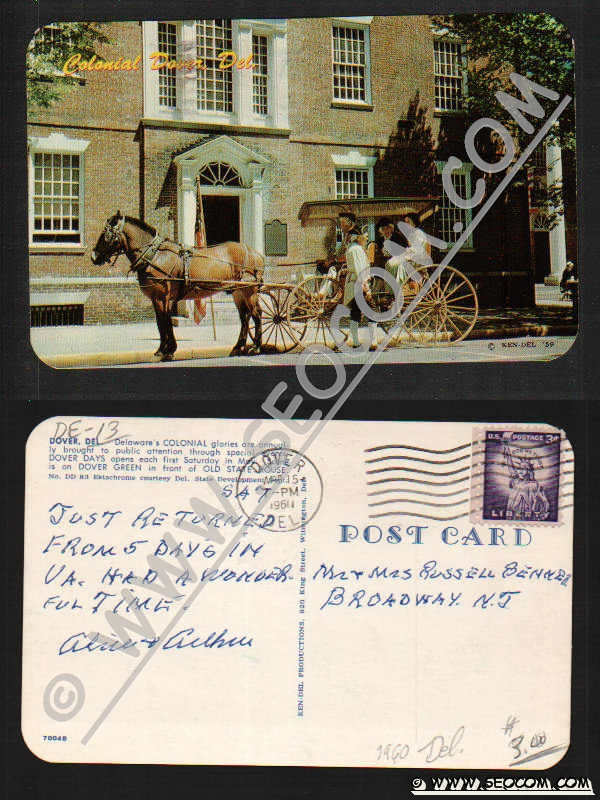 Colonial Dover, Del.
© KEN-DEL '59
© WWW.SEOCOM.COM
DE-13
DOVER, DEL. Delaware's COLONIAL glories are annual-
ly brought to public attention through special
DOVER DAYS opens each first Saturday in
is on DOVER GREEN in front of OLD STATE HOUSE
No. DD 83 Ektachrome courtesy Del. State Development
DOVER
15
PM
1960
DEL
U.S. POSTAGE 3¢
LIBERTY
SAT
JUST RETURNED
FROM 5 DAYS IN
VA. HAD A WONDER-
FUL TIME.
POST CARD
Mr & Mrs RUSSELL
BROADWAY. N.J
KEN-DEL PRODUCTIONS, 820 King Street, Wilmington, Del.
7004B
1960 Del.
# 3.00
© WWW.SEOCOM.COM